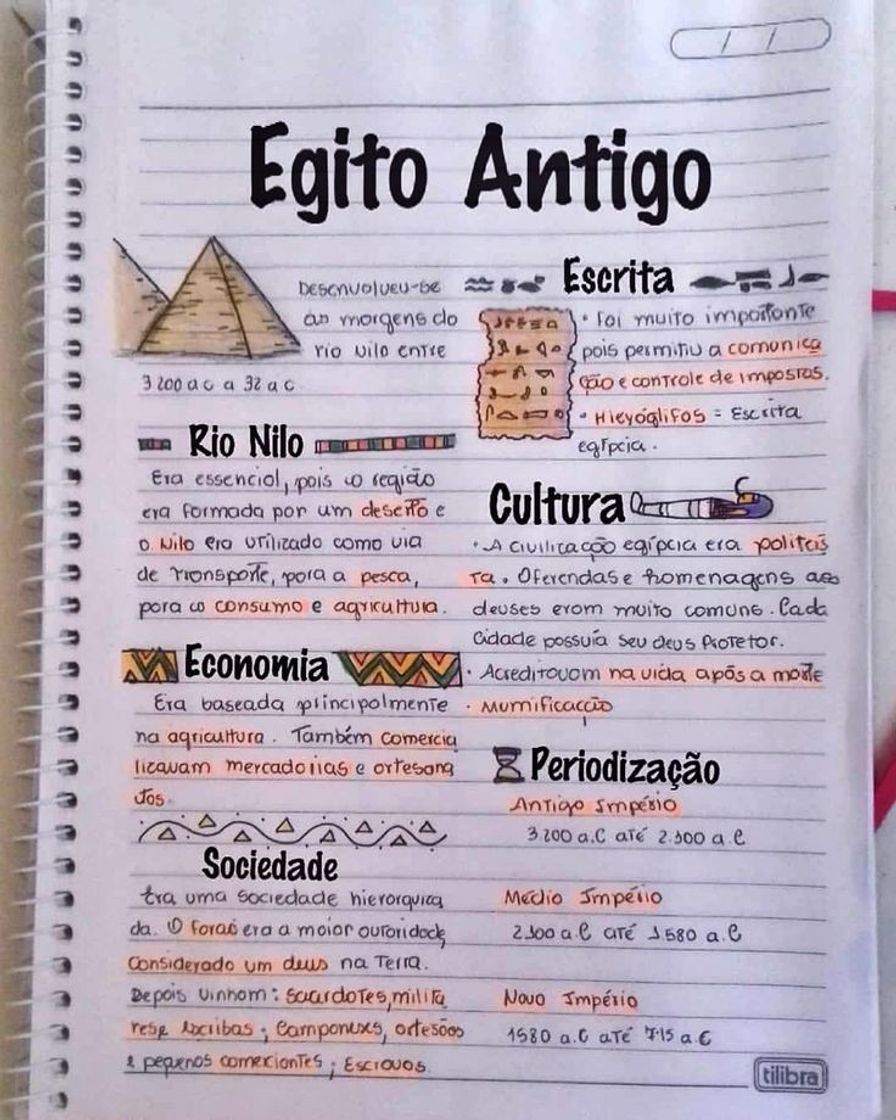 Egito Antigo
Desenvolveu-se
às margens do
rio Nilo entre
3200 a c a 32 a c
Rio Nilo
Era essencial, pois a região
era formada por um deserto e
o Nilo era utilizado como via
de transporte, para a pesca,
para o consumo e agricultura.
Economia
Era baseada principalmente
na agricultura. Também comercia
lizavam mercadorias e artesana
tos.
Sociedade
Era uma sociedade hierarquiza
da. O Faraó era a maior autoridade,
considerado um deus na Terra.
Depois vinham: Sacerdotes, milita
res e Escribas; Camponeses, artesãos
e pequenos comerciantes; Escravos.
Escrita
• Foi muito importante
pois permitiu a comunica
ção e controle de impostos.
• Hieróglifos = Escrita
egípcia.
Cultura
• A civilização egípcia era politeís
ta. Oferendas e homenagens aos
deuses eram muito comuns. Cada
cidade possuía seu deus Protetor.
• Acreditavam na vida após a morte
• Mumificação
Periodização
Antigo Império
3.200 a.C até 2.300 a.C
Médio Império
2.300 a.C até 1580 a.C
Novo Império
1580 a.C até 715 a.C
tilibra